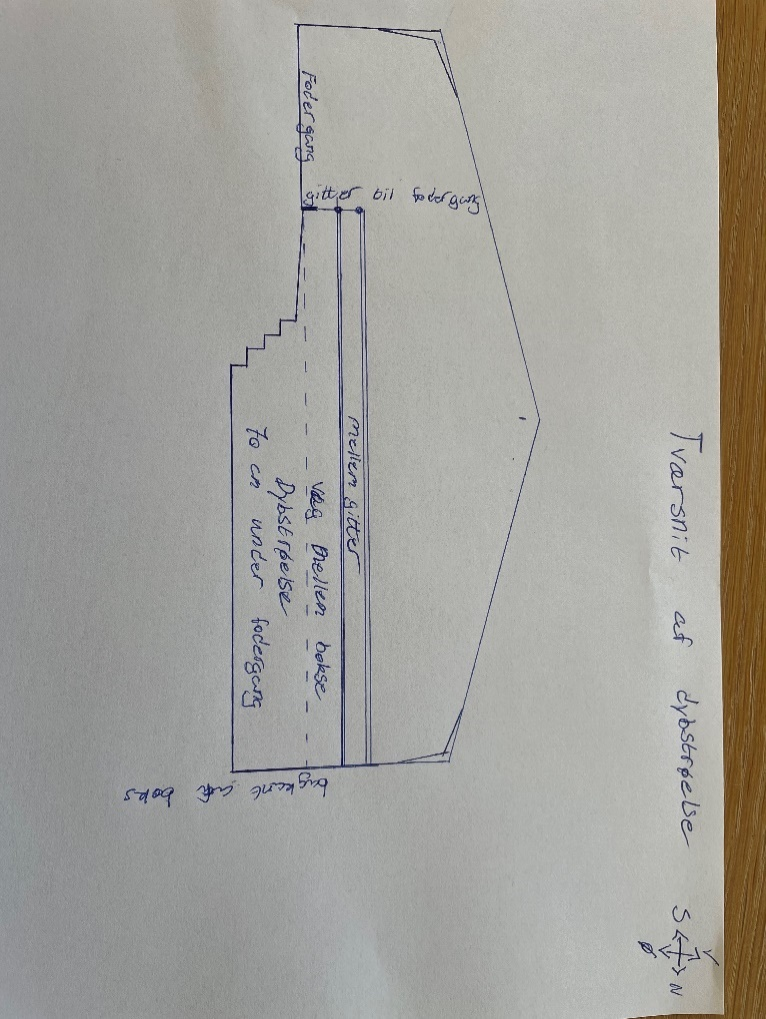 Tværsnit af dybstrøelse
S
V
N
Ø
Fodergang
gitter til fodergang
mellem gitter
væg mellem bokse
Dybstrøelse
70 cm under fodergang
bagkant boks